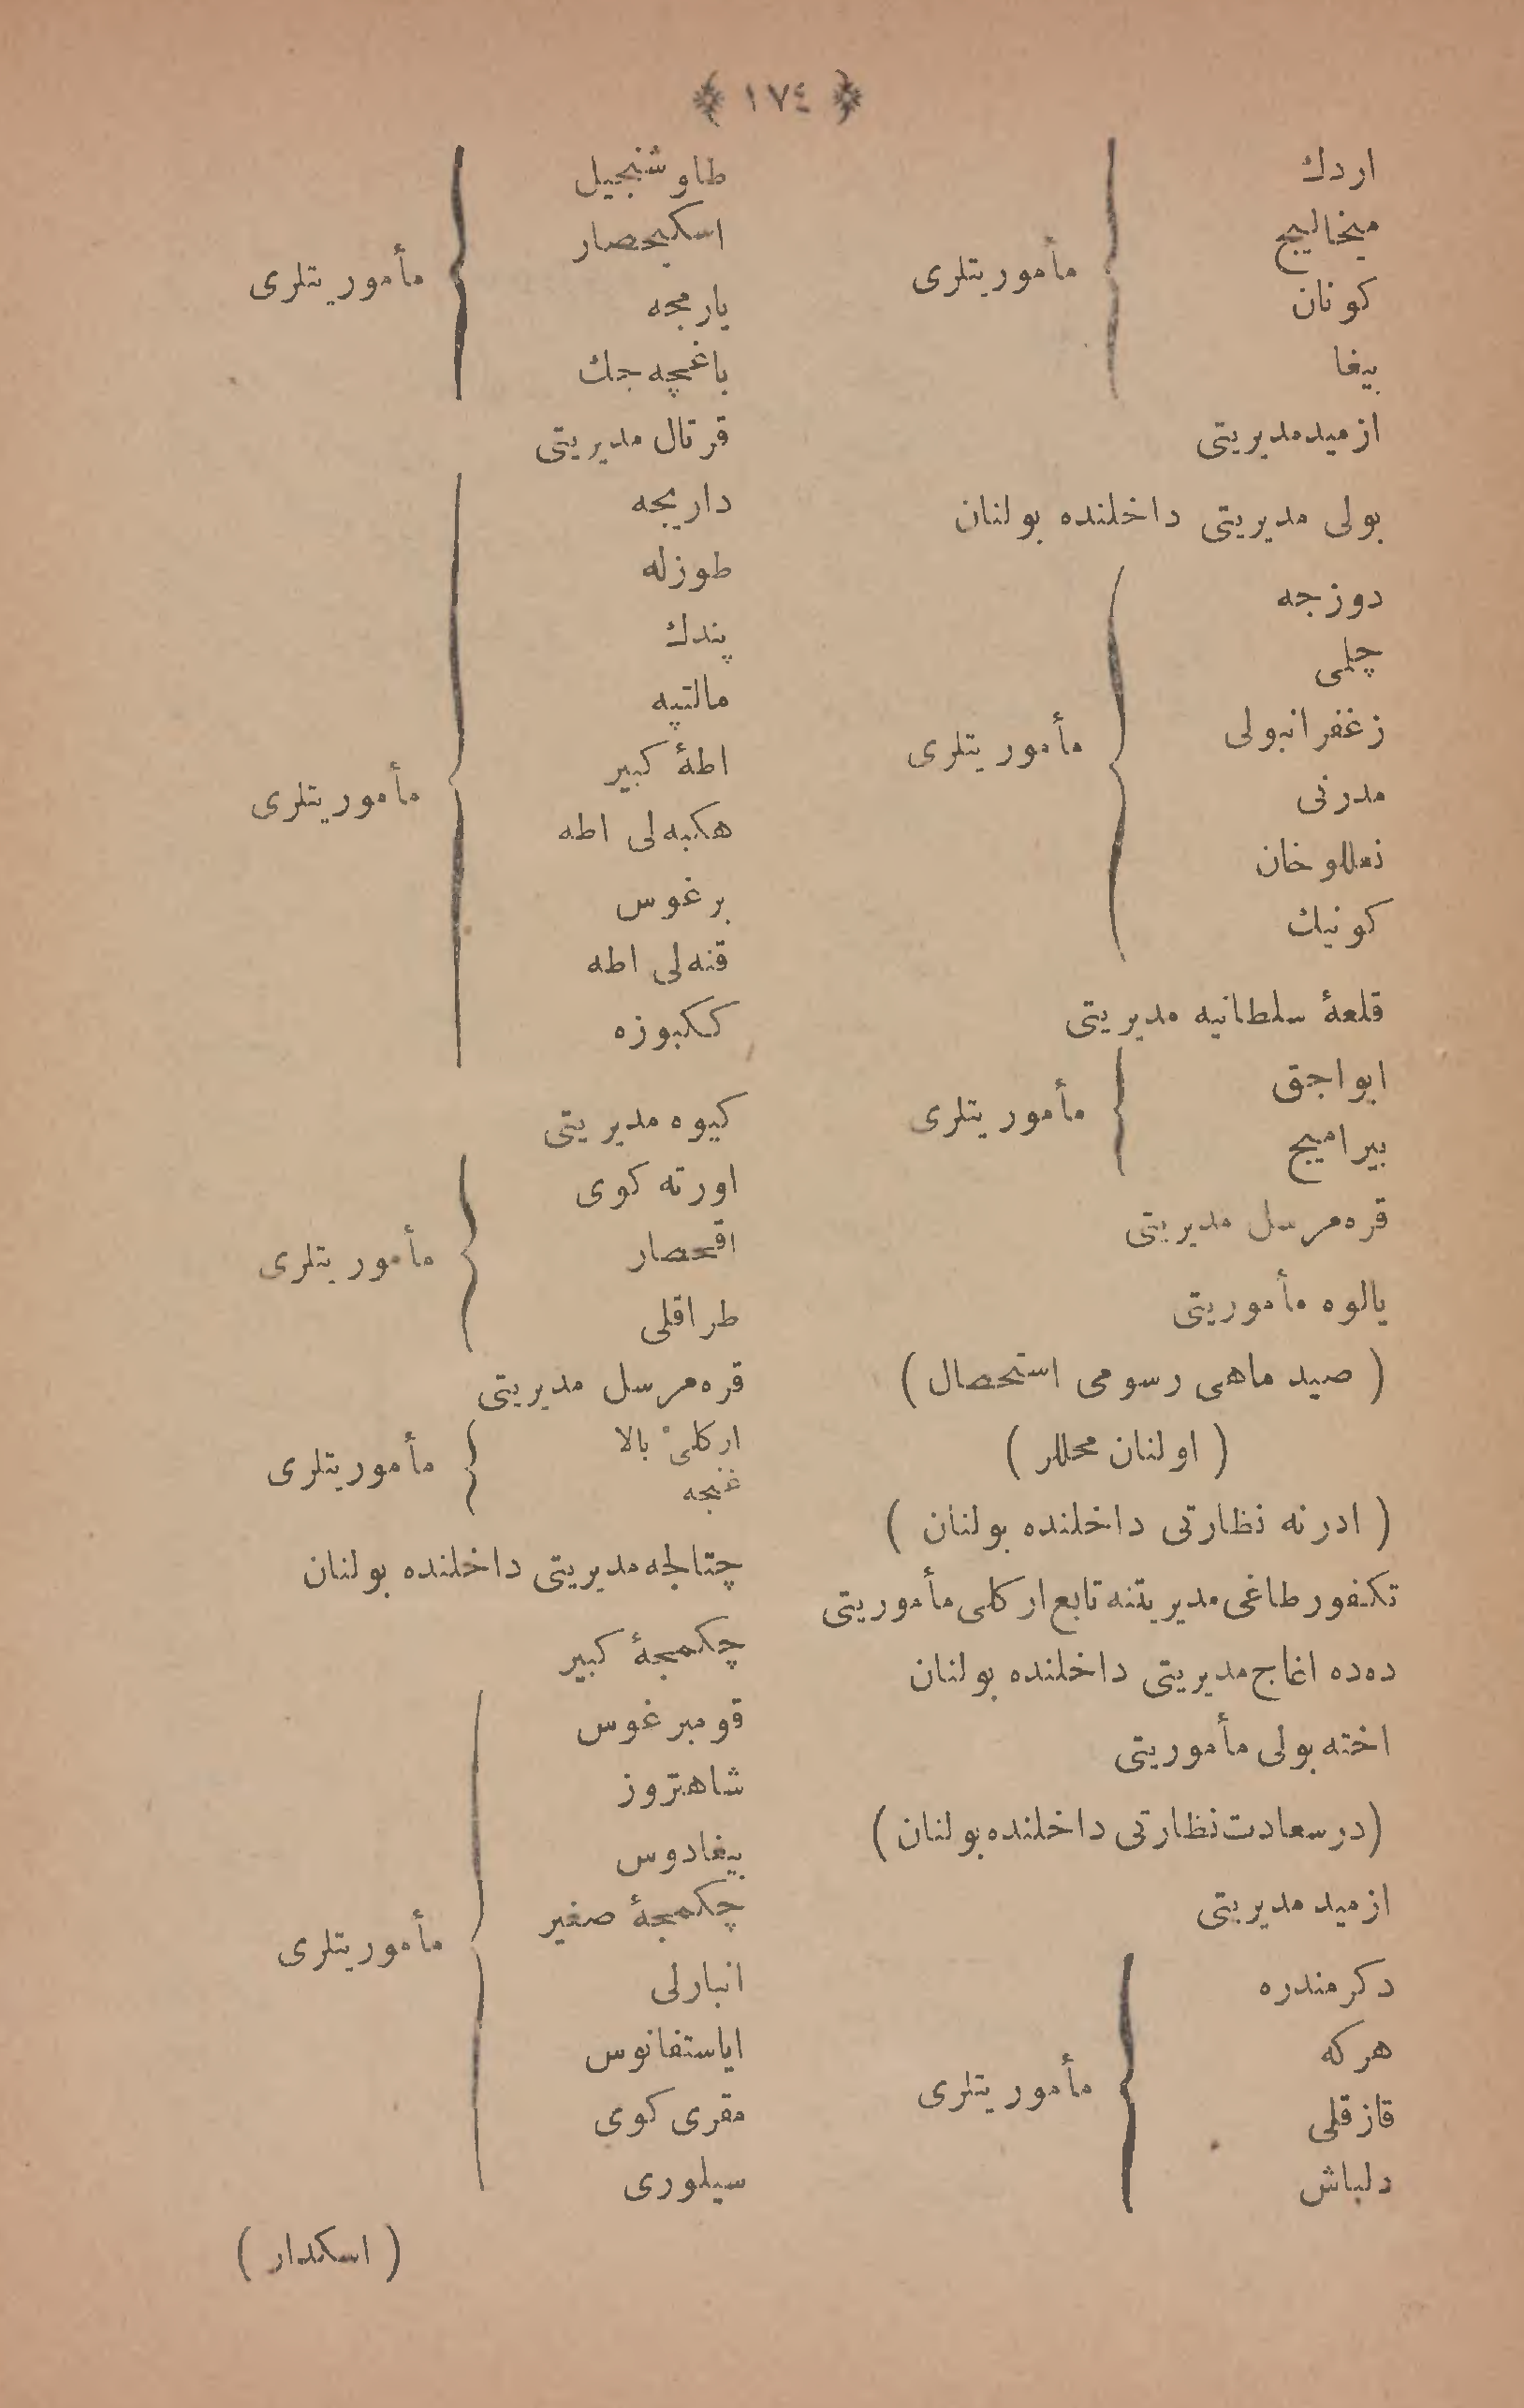 ١٧٤
اردك
ميخاليج
كونان
بيغا
مأموريتلرى
ازميد مديريتى
بولى مديريتى داخلنده بولنان
دوزجه
چلمى
زغفرانبولى
مدرنى
نعللو خان
كونيك
مأموريتلرى
قلعهٔ سلطانيه مديريتى
ايواجق
بيراميج
مأموريتلرى
قره‌مرسل مديريتى
يالوه مأموريتى
( صيد ماهى رسومى استحصال )
( اولنان محللر )
( ادرنه نظارتى داخلنده بولنان )
تكفور طاغى مديريتنه تابع اركلى مأموريتى
ده‌ده اغاج مديريتى داخلنده بولنان
اخته بولى مأموريتى
( درسعادت نظارتى داخلنده بولنان )
ازميد مديريتى
دكرمندره
هركه
قازقلى
دلباش
مأموريتلرى
طاوشنجيل
اسكيحصار
يارمجه
باغچه جك
مأموريتلرى
قرتال مديريتى
داريجه
طوزله
پندك
مالتپه
اطهٔ كبير
هكبه‌لى اطه
برغوس
قنه‌لى اطه
ككبوزه
مأموريتلرى
كيوه مديريتى
اورته كوى
اقحصار
طراقلى
مأموريتلرى
قره‌مرسل مديريتى
اركلئ بالا
غنجه
مأموريتلرى
چتالجه مديريتى داخلنده بولنان
چكمجهٔ كبير
قومبرغوس
شاهتروز
بيغادوس
چكمجهٔ صغير
انبارلى
اياستفانوس
مقرى كوى
سيلورى
مأموريتلرى
( اسكدار )